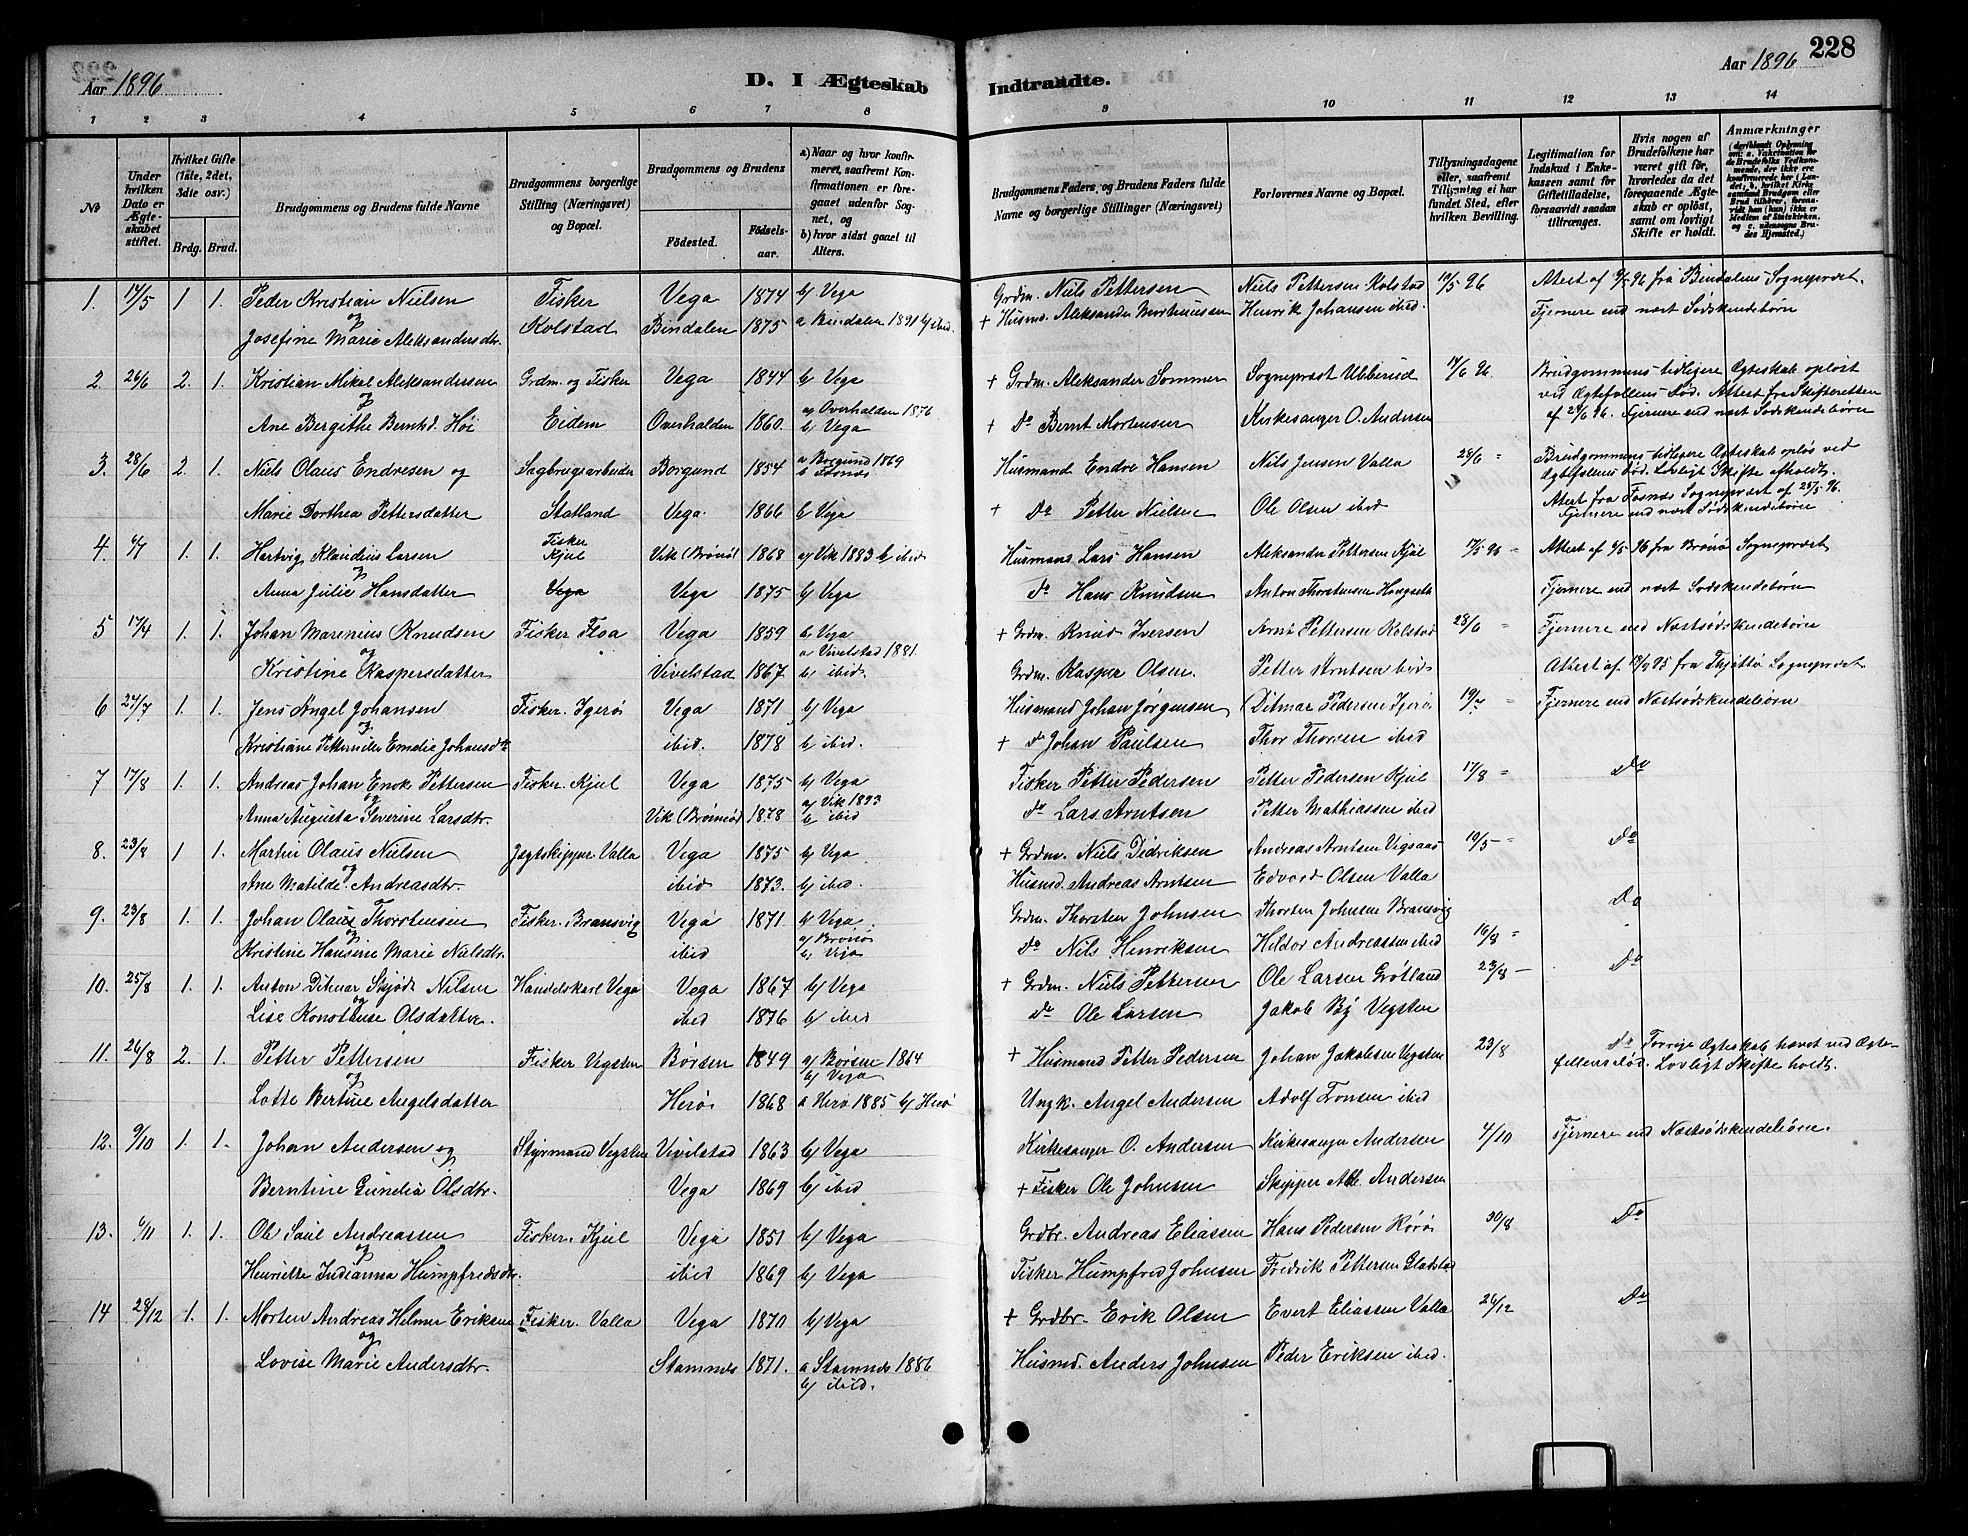 Aar 1896
D. I Ægteskab Indtraadte.
Aar 1896
228
1 2 3 4 5 6 7 8 9 10 11 12 13 14
No
Under hvilken Dato er Ægteskabet stiftet.
Hvilket Gifte (1ste, 2det, 3die osv.)
Brdg. Brud.
Brudgommens og Brudens fulde Navne
Brudgommens borgerlige Stilling (Næringsvei) og Bopæl.
Brudgommens og Brudens
Fødested. Fødselsaar.
a) Naar og hvor konfirmeret, saafremt Konfirmationen er foregaaet udenfor Sognet, og
b) hvor sidst gaaet til Alters.
Brudgommens Faders, og Brudens Faders fulde Navne og borgerlige Stillinger (Næringsvei)
Forlovernes Navne og Bopæl.
Tillysningsdagene eller, saafremt Tillysning ei har fundet Sted, efter hvilken Bevilling.
Legitimation for Indskud i Enkekassen samt for Giftetilladelse, forsaavidt saadan tiltrænges.
Hvis nogen af Brudefolkene har været gift før, hvorledes da det foregaaende Ægteskab er opløst, samt om lovligt Skifte er holdt.
Anmærkninger
1. 17/5 1 1. Peder Kristian Nielsen Fisker Vega 1874 b/ Vega Grdm. Niels Pettersen Niels Pettersen Kolstad 10/5 96 Attest af 9/5 96 fra Bindalens Sognepræst.
og
Josefine Marie Aleksandersdtr. Kolstad Bindalen 1875 a Bindalen 1891 b/ ibid. + Husmd. Aleksander Henrik Johansen ibid. Fjernere end næst Sødskendebørn
2. 26/6 2. 1. Kristian Mikal Aleksandersen Grdm. og Fisker Vega 1844 b/ Vega + Grdm. Aleksander Sommer Sognepræst Ubberud 14/6 96. Brudgommens tidligere Ægteskab opløst
og ved Ægtefællens Død. Attest fra Skifteretten
Ane Bergithe Berntsd. Høi Eidem Overhalden 1860. a/ Overhalden 1876 b/ Vega + Do Bernt Mortensen Kirkesanger O. Andersen af 24/6 96. Fjernere end næst Sødskendebørn
3. 28/6 2. 1. Niels Olaus Endresen og Sagbrugsarbeider Borgund 1854 a Borgund 1869 b Fosnæs Husmand Endre Hansen Nils Jensen Valla 28/6 = Brudgommens tidligere Ægteskab opløs ved
Ægtefællens Død. Lovligt Skifte afholdt.
Marie Dorthea Pettersdatter Statland Vega. 1866 b Vega + Do Petter Nielsen Ole Olsen ibid Attest fra Fosnæs Sognepræst af 25/5 96.
Fjernere end næst Sødskendebørn
4. 4/7 1. 1. Hartvig Klaudius Larsen Fisker Kjul Vik (Brønø) 1868 a/ Vik 1883 b/ ibid Husmand Lars Hansen Aleksander Pettersen Kjul 17/5 96 = Attest af 4/5 96 fra Brønø Sognepræst
og
Anna Julie Hansdatter Vega Vega 1875 b/ Vega do Hans Knudsen Anton Thorstensen Hongseth Fjernere end næst Sødskendebørn
5 17/4 1. 1. Johan Marenius Knudsen Fisker Floa Vega 1859 b/ Vega + Grdm. Knud Iversen Arnt Pettersen Kolstad 28/6 = Fjernere end Næstsødskendebørn
og
Kristine Kaspersdatter Vivelstad 1867. a Vivelstad 1881. b/ ibid. Grdm. Kasper Olsen. Petter Arntsen ibid Attest af 19/9 95 fra Thjøttø Sognepræst
6 24/7 1. 1. Jens Angel Johansen Fisker. Igerøi Vega 1871 b/ Vega Husmand Johan Jørgensen Ditmar Pedersen Igerøi 19/7 = Fjernere end Næstsødskendebørn
og
Kristiane Petternelle Emelie Johansdtr ibid. 1878 b/ ibid. + do Johan Paulsen Thor Thorsen ibid
7 17/8 1. 1. Andreas Johan Enok Pettersen Fisker. Kjul Vega 1875 b/ Vega Fisker Petter Pedersen Petter Pedersen Kjul 17/8 = Do
og
Anna Augusta Severine Larsdtr. Vik (Brønnø) 1878 a/ Vik 1893 b/ ibid do Lars Arntsen Petter Mathiassen ibid
8. 23/8 1 1. Martin Olaus Nielsen Jagtskipper Valla Vega 1875 b/ Vega + Grdm. Niels Didriksen Andreas Arntsen Vigsaas 10/5 = Do
og
Ane Matilde Andreasdtr. ibid 1873. b/ ibid. Husmd. Andreas Arntsen Edvard Olsen Valla
9. 23/8 1. 1. Johan Olaus Thorstensen Fisker. Bransvig Vega 1871 b/ Vega Grdm. Thorsten Johnsen Thorsten Johnsen Bransvig Do
og
Kristine Hansine Marie Nielsdtr. ibid a/ Brønø b/ Vega do Nils Henriksen Heldor Andreassen ibid 16/8 =
10. 25/8 1. 1. Anton Ditmar Skjøde Nilsen Handelskarl Vega Vega 1867 b/ Vega + Grdm. Niels Pettersen Ole Larsen Grøtland 23/8 - Do
og
Lise Konotense Olsdatter. ibid 1876 b/ ibid do Ole Larsen Jakob By Vegsten
11. 26/8 2. 1. Petter Pettersen Fisker Vegsten Børsen 1849 a/ Børsen 1864 b/ Vega + Husmand Petter Pedersen Johan Jakobsen Vegsten 23/8 do Forrige Ægteskab hævet ved Ægte-
og fellens død. Lovligt Skifte holdt.
Lotte Bertine Angelsdatter Herø 1868 a Herø 1885 b/ Herø Ungk. Angel Andersen Adolf Tonsen ibid
12. 9/10 1. 1. Johan Andersen og Styrmand Vegsten Vivilstad 1863 b/ Vega Kirkesanger O. Andersen Kirkesanger Andersen 4/10 Fjernere end Næstsødskendebørn.
Berntine Gunelia Olsdtr. Vega 1869 b/ ibid + Fisker Ole Johnsen Skipper Alb. Andersen
13. 6/11 1. 1. Ole Paul Andreassen Fisker. Kjul Vega 1851 b/ Vega Grdbr. Andreas Eliassen Hans Pedersen Rørøi 30/8 Do
og
Henriette Indianna Humpfredsdtr. ibid 1869 b/ Vega Fisker Humpfred Johnsen Fredrik Pettersen Gladstad
14 28/12 1. 1. Morten Andreas Helmer Eriksen Fisker. Valla Vega 1870 b/ Vega + Grdbr. Erik Olsen Evert Eliassen Valla 26/12 Do
og
Lovise Marie Andersdtr. Stamnes 1871. a Stamnes 1886 b/ ibid. Husmd. Anders Johnsen Peder Eriksen ibid.